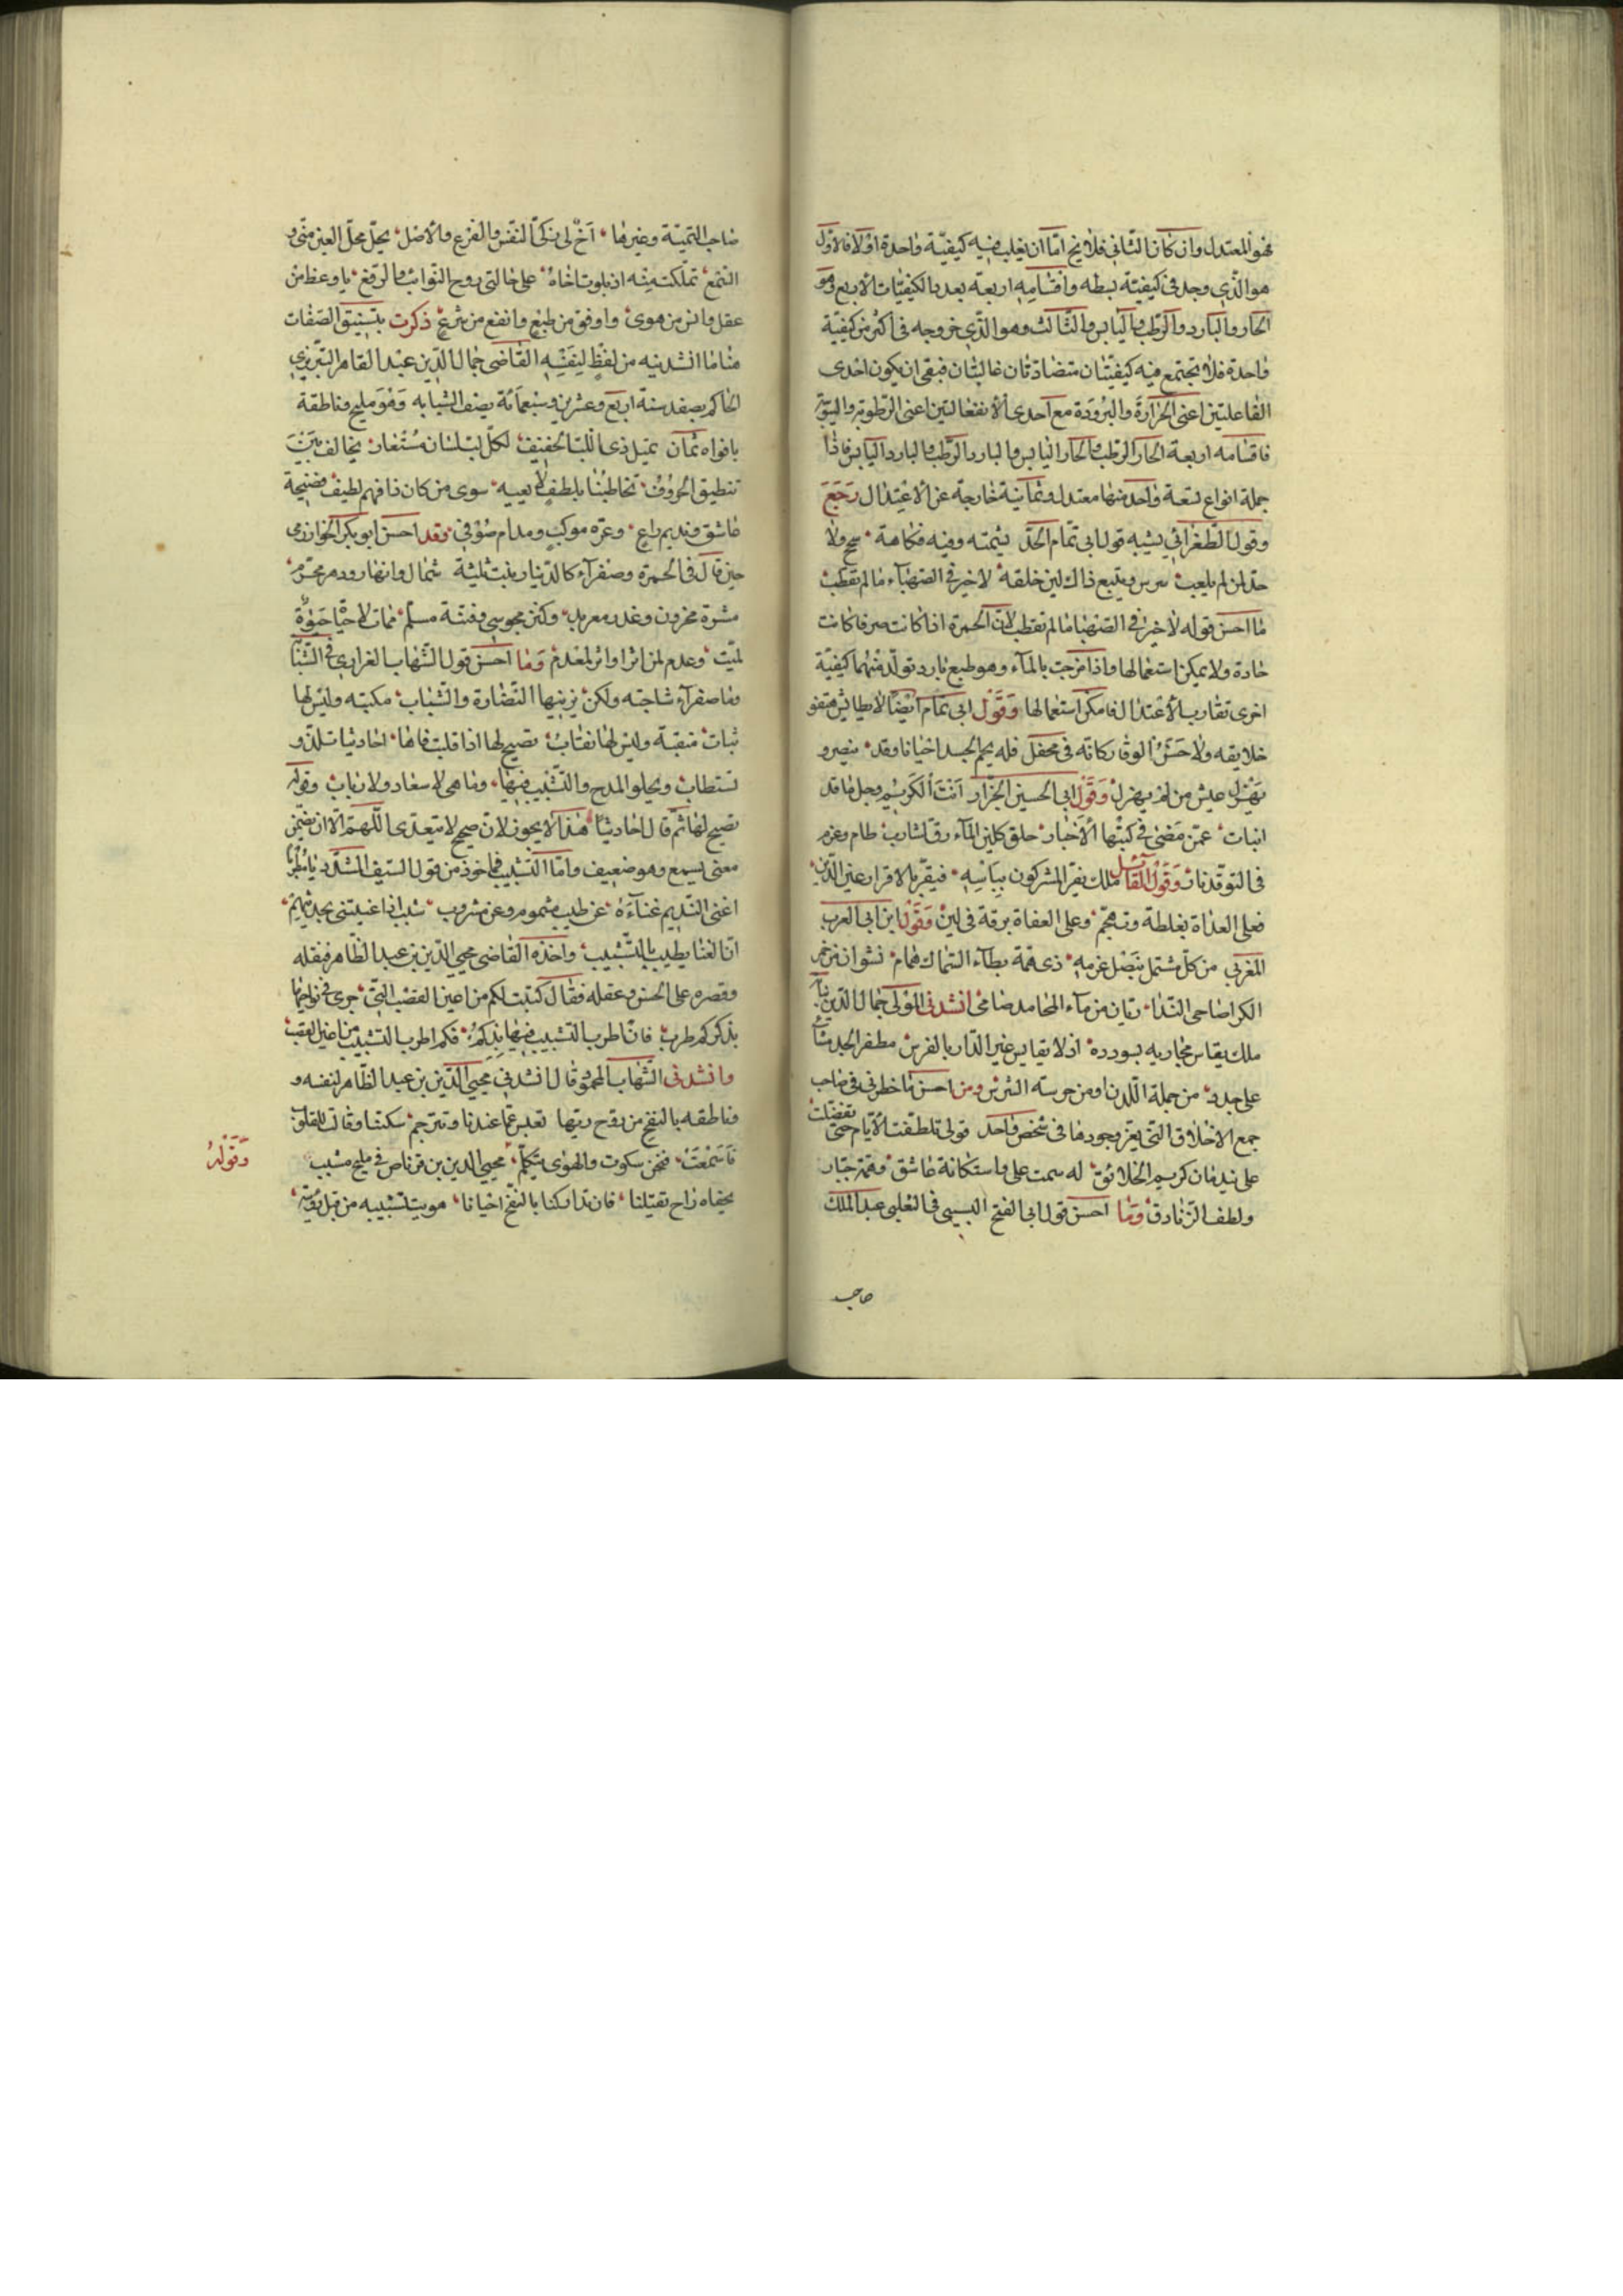 فهو المعتدل وان كان الثانى فلا يخ اما ان يغلب فيه كيفية واحدة اولا فالاول
هو الذى وجد فى كيفيته بسطه واقسامه اربعة بعدد الكيفيات الأربع وهو
الحار والبارد والرطب واليابس والثالث وهو الذى خروجه فى اكثر من كيفية
واحدة فلا تجتمع فيه كيفيتان متضادتان غالبتان فبقى ان يكون احدى
الفاعلتين اعنى الحرارة والبرودة مع احدى الأنفعاليتين اعنى الرطوبة واليبوسة
فاقسامه اربعة الحار الرطب والحار اليابس والبارد الرطب والبارد اليابس فاذا
جملة انواع تسعة واحد منها معتدل وثمانية خارجة عن الأعتدال رجع
وقول الطغرائى يشبه قول ابى تمام الجد شيمته وفيه فكاهة سمح ولا
جد لمن لم يلعب شرس ويتبع ذاك لين خلقه لا خير فى الصهباء مالم تقطب
ما احسن قوله لا خير فى الصهبا مالم تقطب لأن الخمرة اذا كانت صرفا كانت
حادة ولا يمكن استعمالها واذا مزجت بالماء وهو طبع بارد تولد منهما كيفية
اخرى تقارب الأعتدال فامكن استعمالها وقول ابى تمام ايضا لا طائش تهفو
خلايقه ولا خشن الوقار كانه فى محفل فله يحم الجد احيانا وقد ينضو و
يهزل عيش من لم يهزل وقول ابى الحسين الجزار انت الكريم وجل ما قد
اثبات عمن مضى فى كتبها الأخبار خلق كلين الماء رق لشارب طام وعزم
فى التوقد نار وقول القائل ملك يقر المشركون ببأسه فيقر بالاقرار عين الدين
فعلى العداة بغلظة وتهجم وعلى العفاة برقة فى لين وقول ابن ابى العرب
المغربى من كل مشتمل بنصل عزمه ذى همة بطاء السماك همام نشوان من خمر
الكرا ضاحى الندا ريان من ماء المحامد ضامى انشدنى المولى جمال الدين نباته
ملك يقاس مجاريه بسودده اذ لا يقايس غير الدار بالفرس مطفر الجد مشاء
على جدد من جملة اللدن او من حرسته الشرس ومن احسن ما خطر لى فى صاحب
جمع الاخلاق التى يعز وجودها فى شخص واحد قولى تلطفت الأيام حتى تفضلت
على ندمان كريم الخلائق له سمت على واستكانة عاشق وهمة جبار
ولطف الزنادق وما احسن قول ابى الفتح البستى فى الثعلبى عبد الملك
صاحب
صاحب اليتيمة وغيرها اخ لى زكى النفس والفرع والأصل يحل محل العين منى و
السمع تملكت منه اذ بلوت اخاه على حالتى روح النوائب والرفع باوعظ من
عقل وانس من هوى واوفق من طبع وانفع من شرع ذكرت بتنسيق الصفات
هنا ما انشدنيه من لفظ لنفسه القاضى جمال الدين عبد القاهر التبريزى
الحاكم بصفد سنة اربع وعشرين وسبعمائة يصف الشبابه وهو مليح وناطقة
بافواه ثمان تميل ذى اللب الخفيف لكل لب لسان مستعار يخالف بين
تنطيق الحروف تخاطبنا بلطف لا يعيه سوى من كان ذا فهم لطيف فضيحة
عاشق ونديم راع وعزه موكب ومدام صوفى وقد احسن ابو بكر الخوارزمى
حين قال فى الخمرة وصفراء كالدينار بنت ثلثة شمال وانهار ودهر محرم
مسرة محزون وعذر معربد وكنز مجوسى وفتنة مسلم ممات لأحيا حيوة
لميت وعدم لمن اثرا واثر لمعدم وما احسن قول الشهاب الغرابى فى الشبا
وما صفراء شاحبته ولكن يزينها النضارة والشباب مكتبه وليس لها
ثبات منقبة وليس لها نقاب تصيح لها اذا قبلت فاها احاديثا تلذ و
تستطاب ويحلو المدح والتشبيب فيها وما هى لا سعاد ولا رباب وقوله
تصيح لها ثم قال احاديثا هذا لا يجوز لان صيح لا يتعدى اللهم الا ان تضمن
معنى يسمع وهو ضعيف واما التشبيب فماخوذ من قول السيف المشد يا مطربا
اغنى النديم غناءه عن طيب مشموم وعن مشروب شبب اذا غنيتنى بحديثهم
ان الغنا يطيب بالتشبيب واخذه القاضى محيى الدين بن عبد الظاهر فنقله
وقصره على الحسن وعقله فقال كتبت لكم من اعين القصب التى جرى فى نواحيها
بذكركم طرب فان اطرب التشبيب فيها بذكركم فكم اطرب التشبيب من اعين القصب
وانشدنى الشهاب المحمود قال انشدنى محيى الدين بن عبد الظاهر لنفسه و
وناطقه بالنفخ من روح ربها تعبر عما عندنا وتترجم سكتنا وقالت للقلوب
فاسمعت فنحن سكوت والهوى يتكلم محيى الدين بن قرناص فى مليح مشبب
بجفاه راح تقتيلنا فان تداركنا بالنفخ احيانا هويت لتشبيبه من قبل رؤيته
وقوله